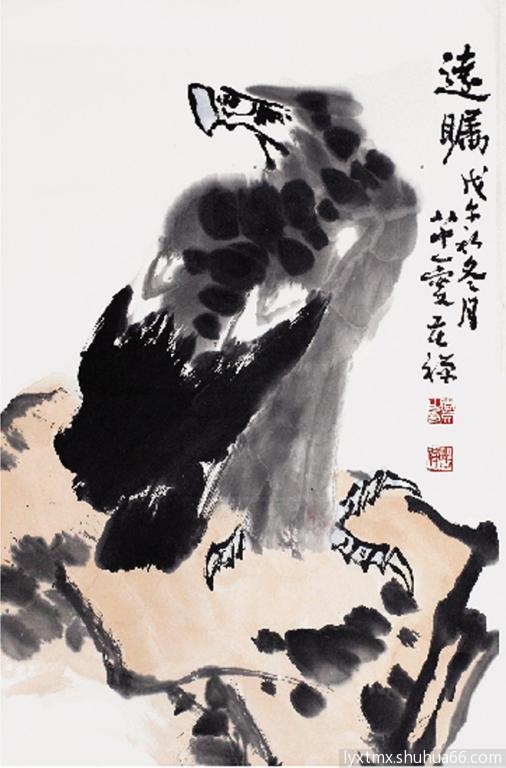 遠瞩
戊午初冬月
叟苦禅
lyxtmx.shuhua66.com